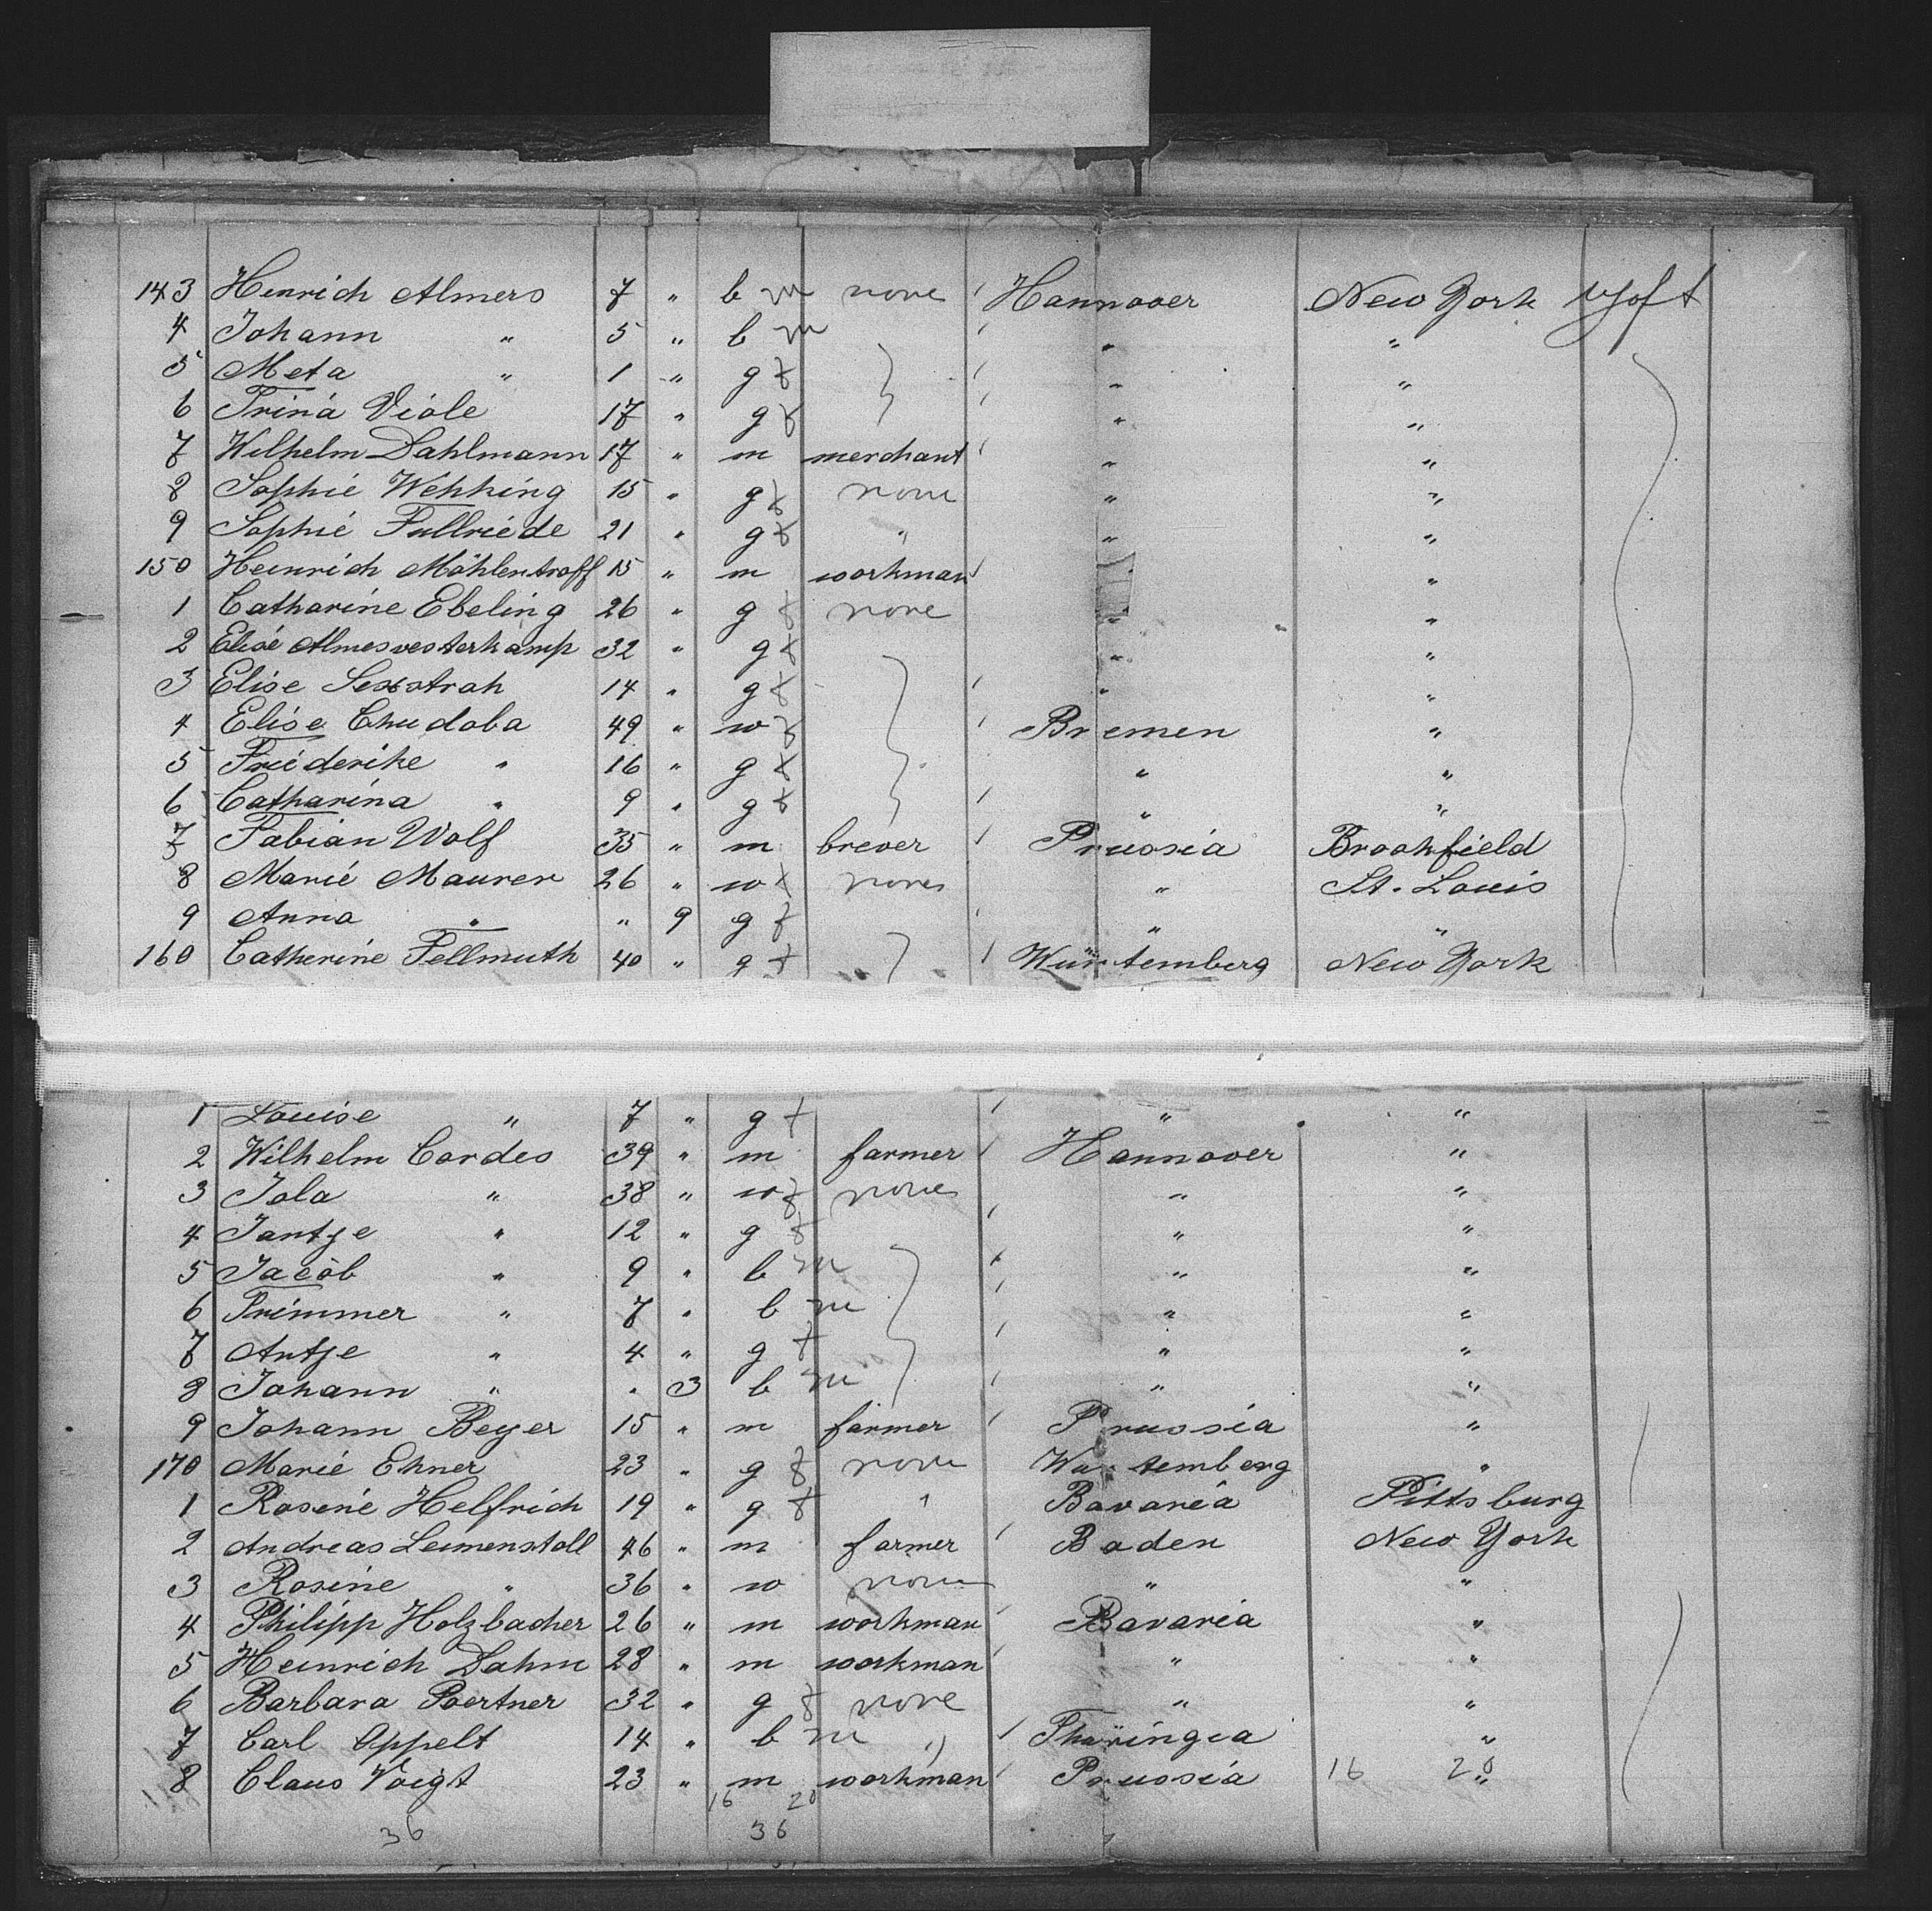 143 Henrich Almers 7 " b m none / Hannover New York
4 Johann " 5 " b m / " "
5 Meta " 1 " g f / " "
6 Trina Viole 17 " g f / " "
7 Wilhelm Dahlmann 17 " m merchant / " "
8 Sophie Wehking 15 " g f none " "
9 Sophie Fullriede 21 " g f " " "
150 Heinrich Möhlentroff 15 " m workman / "
1 Catharine Ebeling 26 " g f none " "
2 Elise Almesvesterkamp 32 " g f " "
3 Elise Sexstroh 14 " g f / " "
4 Elise Chudoba 49 " w f / Bremen "
5 Friederike " 16 " g f " "
6 Catharina " 9 " g f / " "
7 Fabian Wolf 35 " m brewer / Prussia Brookfield
8 Marie Maurer 26 " w f none " St. Louis
9 Anna " " 9 g f / " "
160 Catherine Fellmuth 40 " g f / Würtemberg New York
1 Louise " 7 " g f / " "
2 Wilhelm Cordes 39 " m farmer / Hannover "
3 Jola " 38 " w f none " "
4 Jantje " 12 " g f / " "
5 Jacob " 9 " b m / " "
6 Trimmer " 7 " b m / " "
7 Antje " 4 " g f / " "
8 Johann " " 3 b m / " "
9 Johann Beyer 15 " m farmer / Prussia "
170 Marie Ehner 23 " g f none Wurtemberg "
1 Rosine Helfrich 19 " g f " Bavaria Pittsburg
2 Andreas Leimenstoll 46 " m farmer / Baden New York
3 Rosine " 36 " w none " "
4 Philipp Holzbacher 26 " m workman / Bavaria "
5 Heinrich Dahm 28 " m workman / " "
6 Barbara Poertner 32 " g f none " "
7 Carl Appelt 14 " b m " / Thüringia "
8 Claus Voigt 23 " m workman / Prussia 16 20 "
16 20
36 36